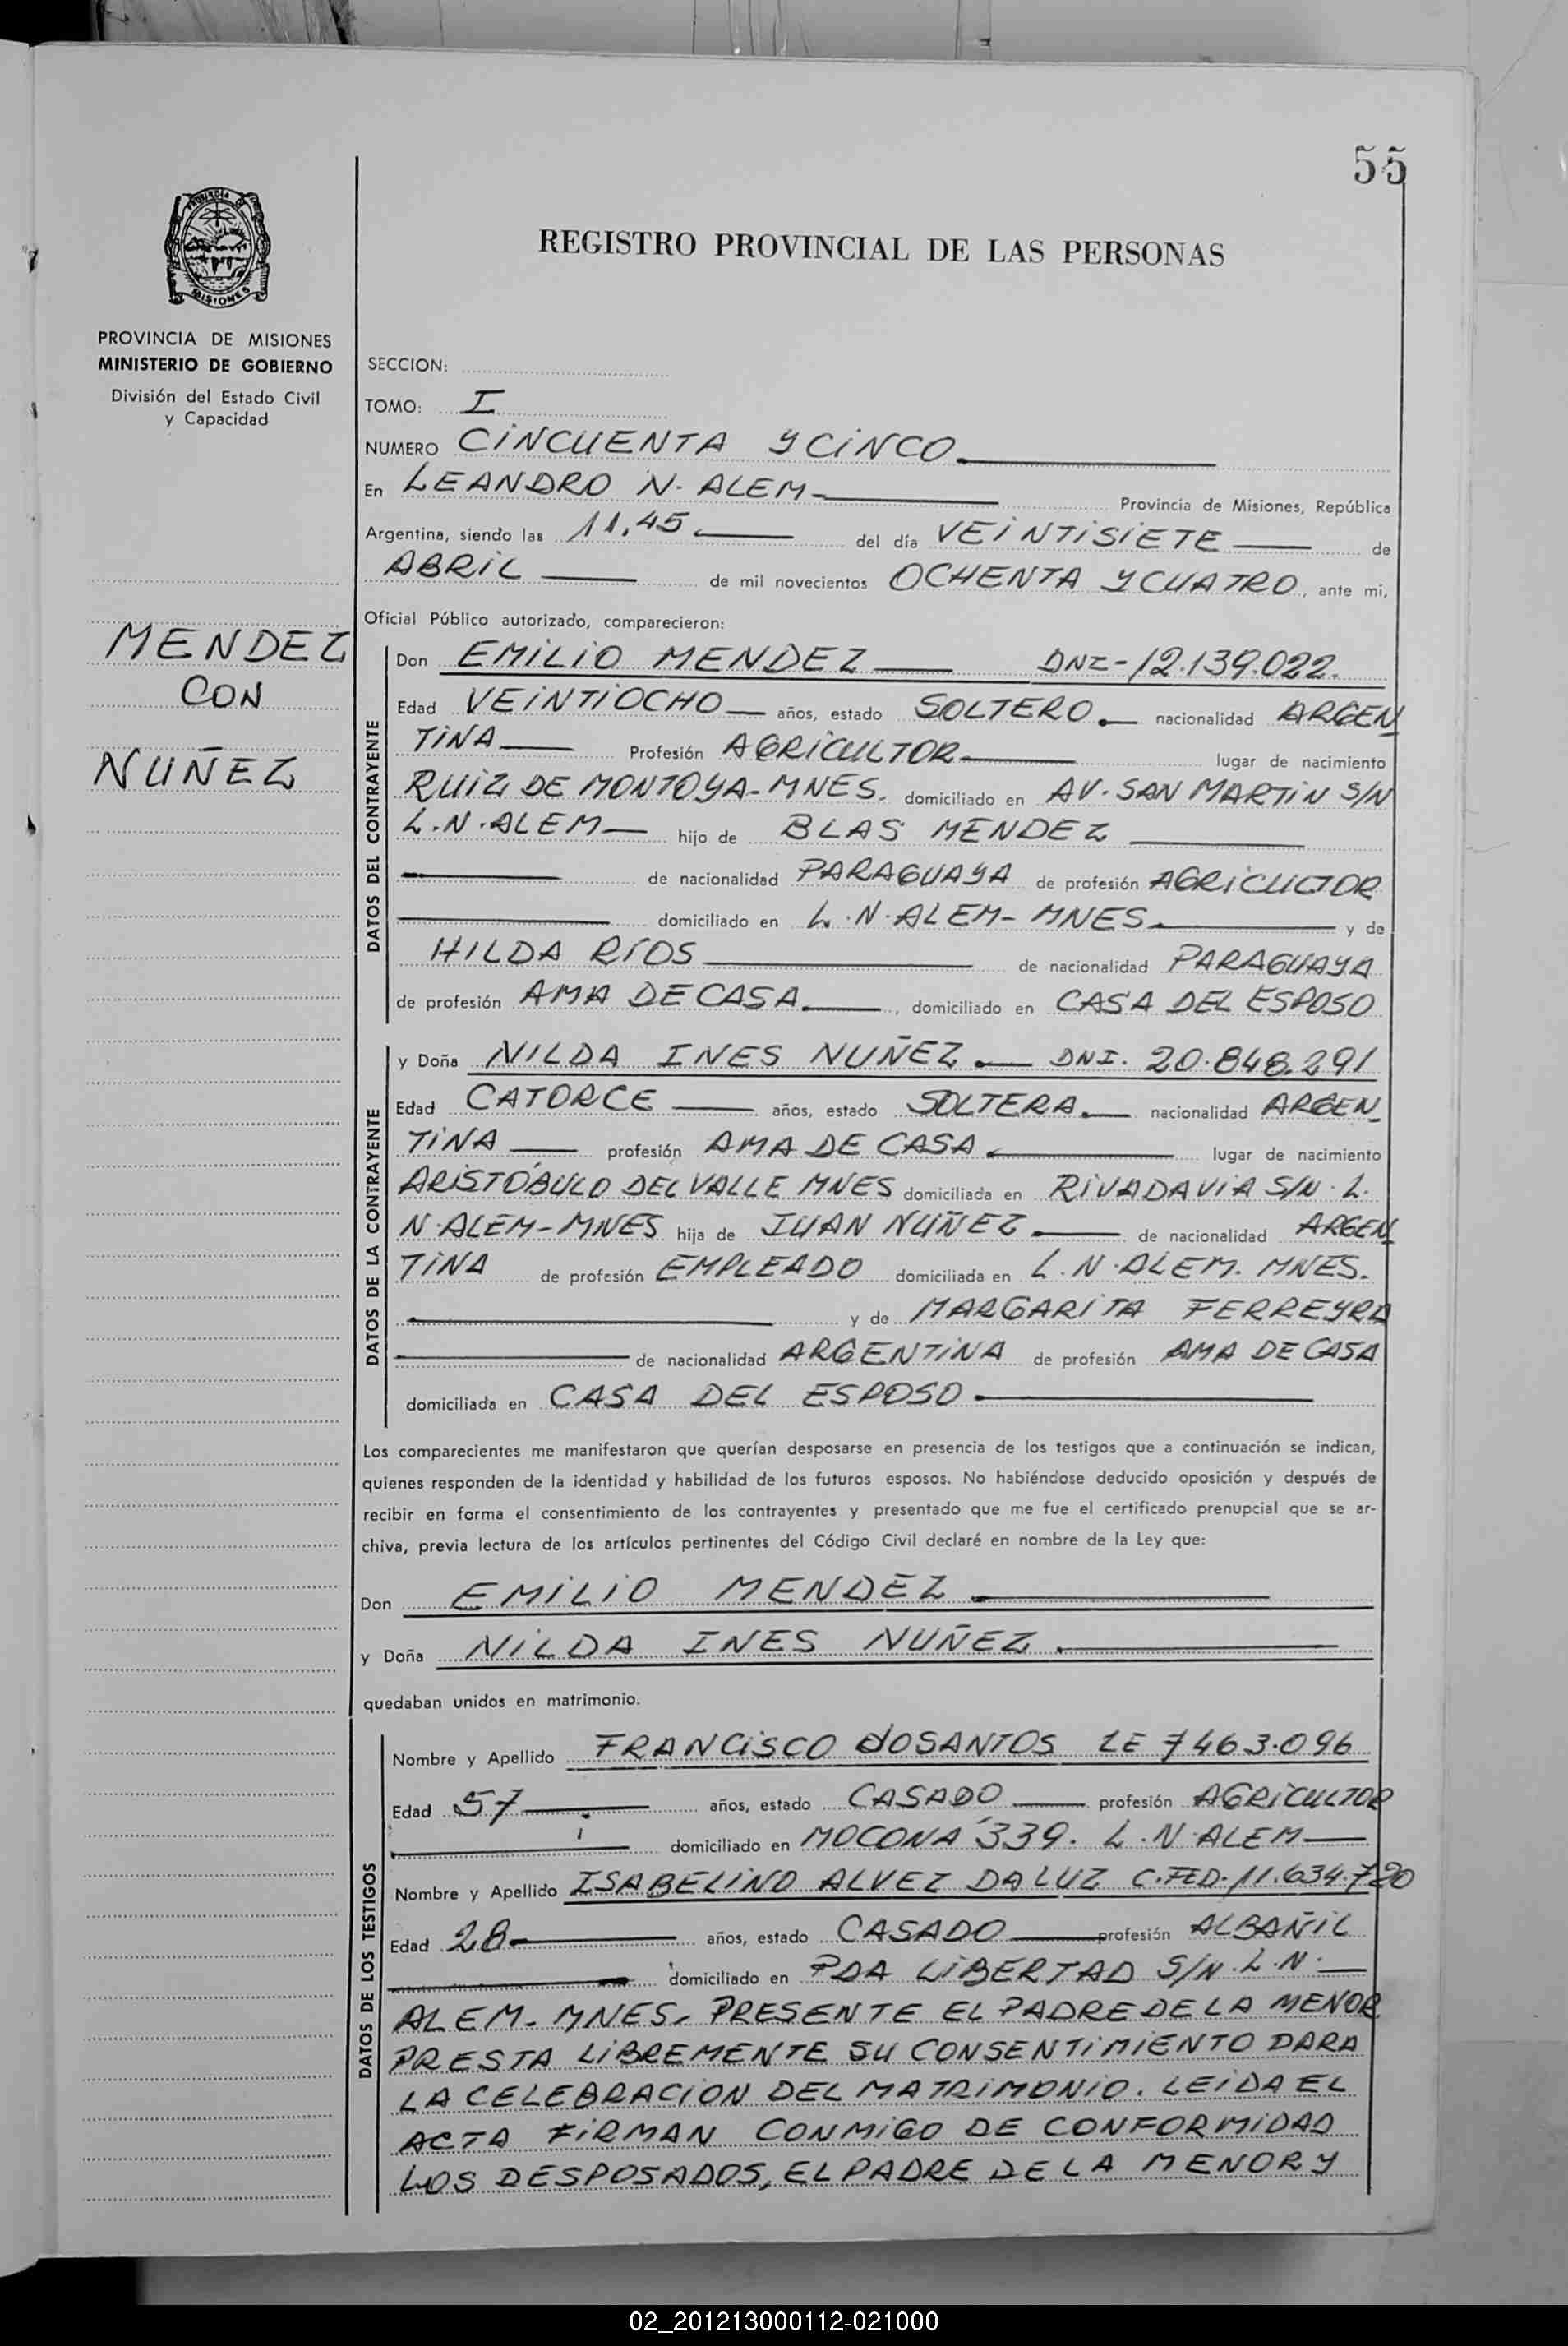 55
PROVINCIA DE
MISIONES
PROVINCIA DE MISIONES
MINISTERIO DE GOBIERNO
División del Estado Civil
y Capacidad
MENDEZ
CON
NUÑEZ
REGISTRO PROVINCIAL DE LAS PERSONAS
SECCION:
TOMO: I
NUMERO CINCUENTA Y CINCO
En LEANDRO N. ALEM Provincia de Misiones, República
Argentina, siendo las 11,45 del día VEINTISIETE de
ABRIL de mil novecientos OCHENTA Y CUATRO, ante mi,
Oficial Público autorizado, comparecieron:
DATOS DEL CONTRAYENTE
Don EMILIO MENDEZ DNI-12.139.022.
Edad VEINTIOCHO años, estado SOLTERO. nacionalidad ARGEN
TINA Profesión AGRICULTOR lugar de nacimiento
RUIZ DE MONTOYA-MNES. domiciliado en AV. SAN MARTIN S/N
L.N.ALEM hijo de BLAS MENDEZ
de nacionalidad PARAGUAYA de profesión AGRICULTOR
domiciliado en L.N.ALEM-MNES. y de
HILDA RÍOS de nacionalidad PARAGUAYA
de profesión AMA DE CASA, domiciliado en CASA DEL ESPOSO
DATOS DE LA CONTRAYENTE
y Doña NILDA INES NUÑEZ DNI. 20.848.291
Edad CATORCE años, estado SOLTERA. nacionalidad ARGEN
TINA profesión AMA DE CASA lugar de nacimiento
ARISTÓBULO DEL VALLE MNES domiciliada en RIVADAVIA S/N. L.
N.ALEM-MNES hija de JUAN NUÑEZ de nacionalidad ARGEN
TINA de profesión EMPLEADO domiciliada en L.N.ALEM. MNES.
y de MARGARITA FERREYRA
de nacionalidad ARGENTINA de profesión AMA DE CASA
domiciliada en CASA DEL ESPOSO
Los comparecientes me manifestaron que querían desposarse en presencia de los testigos que a continuación se indican,
quienes responden de la identidad y habilidad de los futuros esposos. No habiéndose deducido oposición y después de
recibir en forma el consentimiento de los contrayentes y presentado que me fue el certificado prenupcial que se ar-
chiva, previa lectura de los artículos pertinentes del Código Civil declaré en nombre de la Ley que:
Don EMILIO MENDEZ
y Doña NILDA INES NUÑEZ.
quedaban unidos en matrimonio.
DATOS DE LOS TESTIGOS
Nombre y Apellido FRANCISCO dOSANTOS LE 7463.096
Edad 57 años, estado CASADO profesión AGRICULTOR
domiciliado en MOCONÁ 339. L.N.ALEM
Nombre y Apellido ISABELINO ALVEZ DA LUZ C.FED.11.634.720
Edad 28 años, estado CASADO profesión ALBAÑIL
domiciliado en PDA LIBERTAD S/N.L.N.
ALEM-MNES. PRESENTE EL PADRE DE LA MENOR
PRESTA LIBREMENTE SU CONSENTIMIENTO PARA
LA CELEBRACION DEL MATRIMONIO. LEIDA EL
ACTA FIRMAN CONMIGO DE CONFORMIDAD
LOS DESPOSADOS, EL PADRE DE LA MENOR Y
02_201213000112-021000